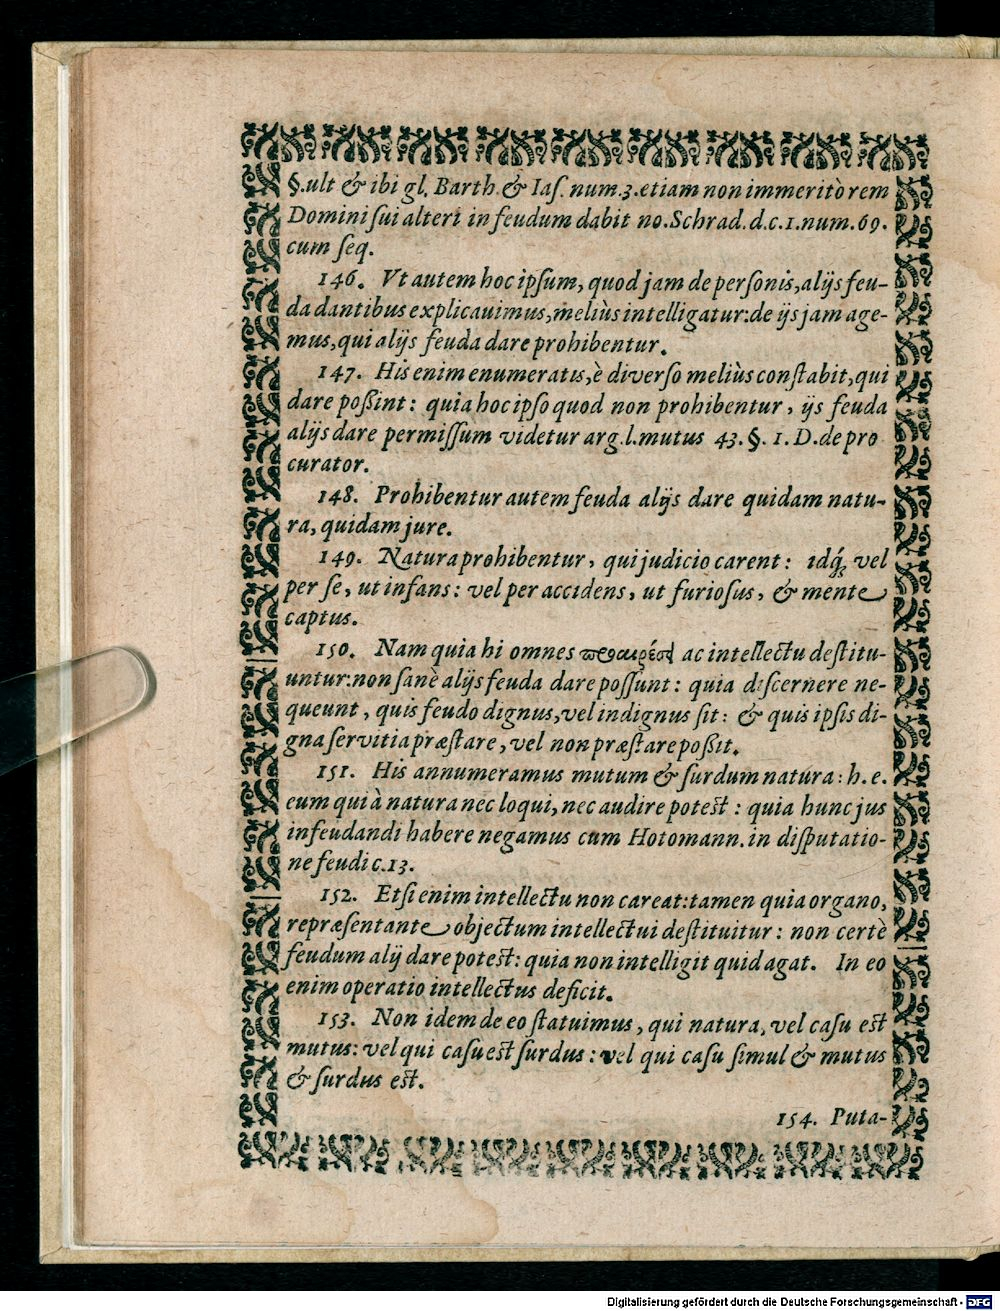 §.ult & ibi gl. Barth. & Iaſ. num.3. etiam non immeritò rem
Domini ſui alteri in feudum dabit no. Schrad. d.c.1. num. 69.
cum ſeq.
146. Vt autem hoc ipſum, quod jam de perſonis, alijs feu-
da dantibus explicauimus, meliùs intelligatur: de ijs jam age-
mus, qui alijs feuda dare prohibentur.
147. His enim enumeratis, è diverſo meliùs conſtabit, qui
dare poßint: quia hoc ipſo quod non prohibentur, ijs feuda
alijs dare permiſſum videtur arg. l. mutus 43. §. 1. D. de pro
curator.
148. Prohibentur autem feuda alijs dare quidam natu-
ra, quidam jure.
149. Natura prohibentur, qui judicio carent: idq́; vel
per ſe, ut infans: vel per accidens, ut furioſus, & mente
captus.
150. Nam quia hi omnes ac intellectu deſtitu-
untur: non ſanè alijs feuda dare poſſunt: quia diſcernere ne-
queunt, quis feudo dignus, vel indignus ſit: & quis ipſis di-
gna ſervitia præſtare, vel non præſtare poßit.
151. His annumeramus mutum & ſurdum natura: h. e.
eum qui à natura nec loqui, nec audire poteſt: quia hunc jus
infeudandi habere negamus cum Hotomann. in diſputatio-
ne feudi c. 13.
152. Etſi enim intellectu non careat: tamen quia organo,
repræſentante objectum intellectui deſtituitur: non certè
feudum alij dare poteſt: quia non intelligit quid agat. In eo
enim operatio intellectus deficit.
153. Non idem de eo ſtatuimus, qui natura, vel caſu eſt
mutus: vel qui caſu eſt ſurdus: vel qui caſu ſimul & mutus
& ſurdus eſt.
154. Puta-
Digitalisierung gefördert durch die Deutsche Forschungsgemeinschaft - DFG